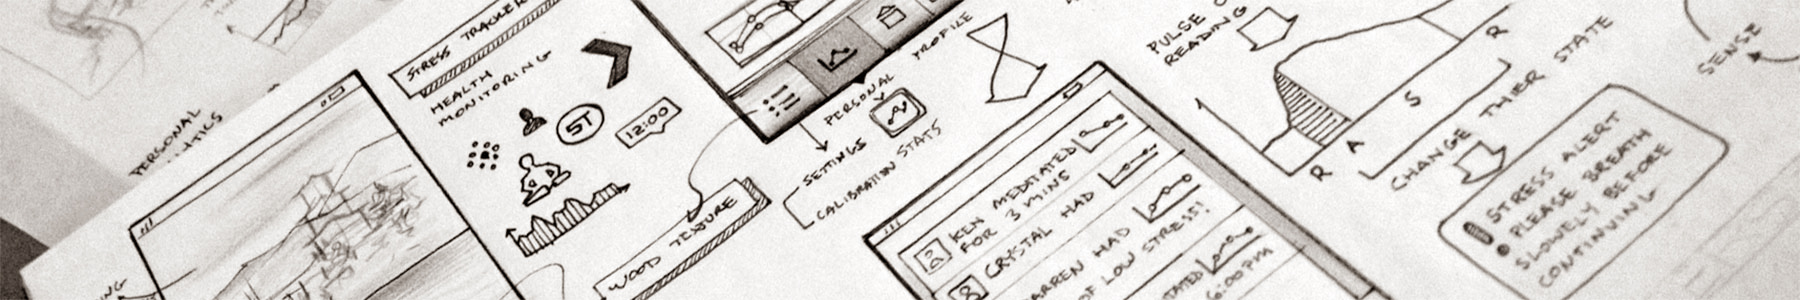 PERSONAL
STRESS TRACKER
HEALTH
MONITORING
ST
12:00
WOOD TEXTURE
SETTINGS
PERSONAL PROFILE
CALIBRATION STATS
KEN MEDITATED
FOR 3 MINS
CRYSTAL HAD
HAD
OF LOW STRESS!
6:00PM
PULSE
READING
R
A
S
R
CHANGE THIER STATE
STRESS ALERT
PLEASE BREATH
SLOWELY BEFORE
CONTINUING
SENSE